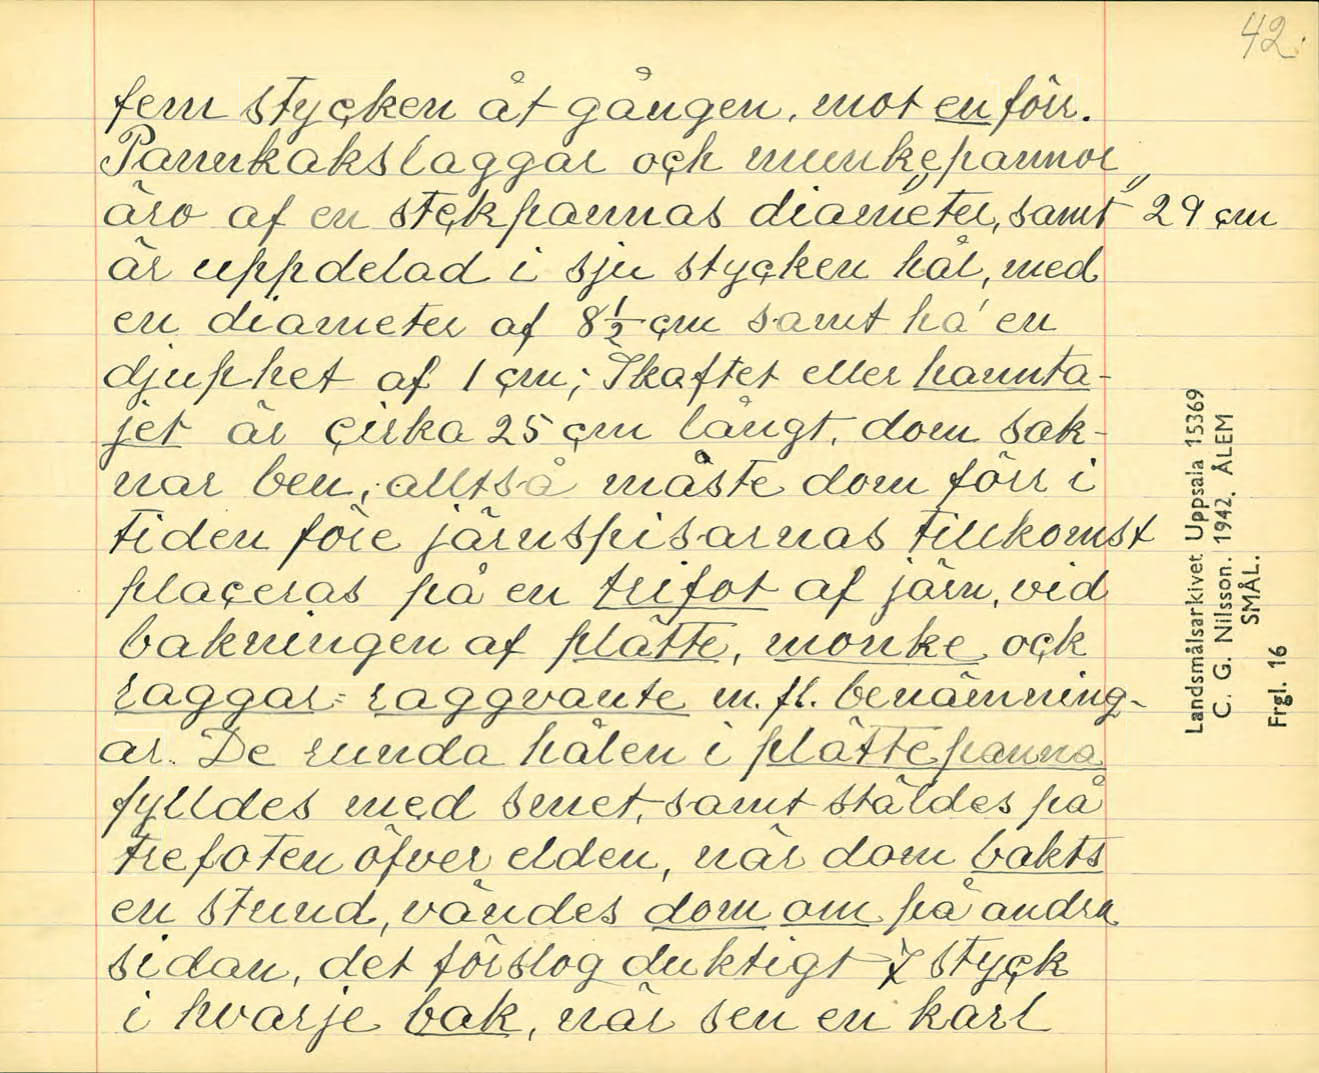 42.
fem stycken åt gången, mot en förr.
Pannkakslaggar och munkepannor
äro af en stekpannas diameter, samt " 29 cm
är uppdelad i sju stycken hål, med
en diameter af 8½ cm samt ha en
djuphet af 1 cm; Skaftet eller hannta-
jet är cirka 25 cm långt, dom sak-
nar ben, alltså måste dom förr i
tiden före järnspisarnas tillkomst
placeras på en trifot af järn, vid
bakningen af plätte, monke ock
raggar = raggvante m. fl. benämning-
ar. De runda hålen i plättepanna
fylldes med smet, samt stäldes på
trefoten öfver elden, när dom bakts
en stund, vändes dom om på andra
sidan, det förslog duktigt 7 styck
i hvarje bak, när sen en karl
Landsmålsarkivet Uppsala 15369
C. G. Nilsson. 1942. ÅLEM
SMÅL.
Frgl. 16